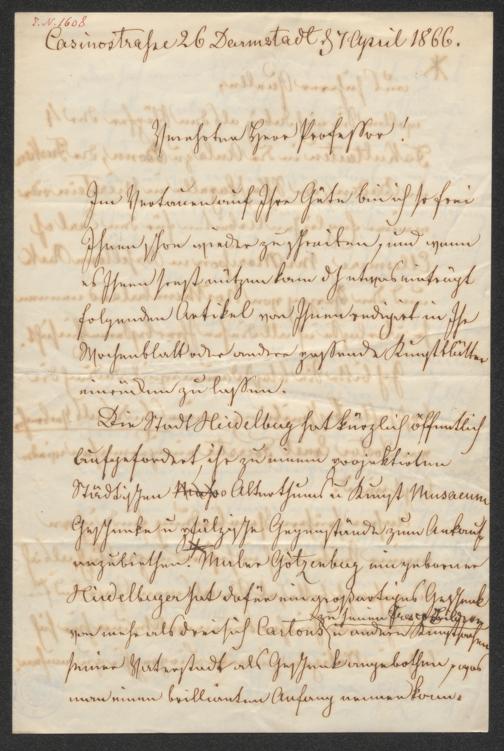 I.N. 1608
Casinostraße 26 Darmstadt d 7 April 1866.
Verehrter Herr Professor!
Im Vertrauen auf Ihre Güte bin ich so frei
Ihnen schon wieder zu schreiben, und wenn
es Ihnen sonst nützen kann d h etwas einträgt
folgenden Artikel von Ihnen redigirt in Ihr
Wochenblatt oder andere passende Kunstblätter
einrücken zu lassen.
Die Stadt Heidelberg hat kürzlich öffentlich
aufgefordert, ihr zu einem projektirten
Städtischen Alterthums u Kunst Musaeum
Geschenke u pfälzische Gegenstände zum Ankauf
anzubiethen. Maler Götzenberg eingeborner
Heidelberger hat dafür ein großartiges Geschenk
von mehr als dreisich Cartons zu seinen Fresco u andern Kunstsachen
seiner Vaterstadt als Geschenk angebothen, was
man einen brillianten Anfang nennen kann.